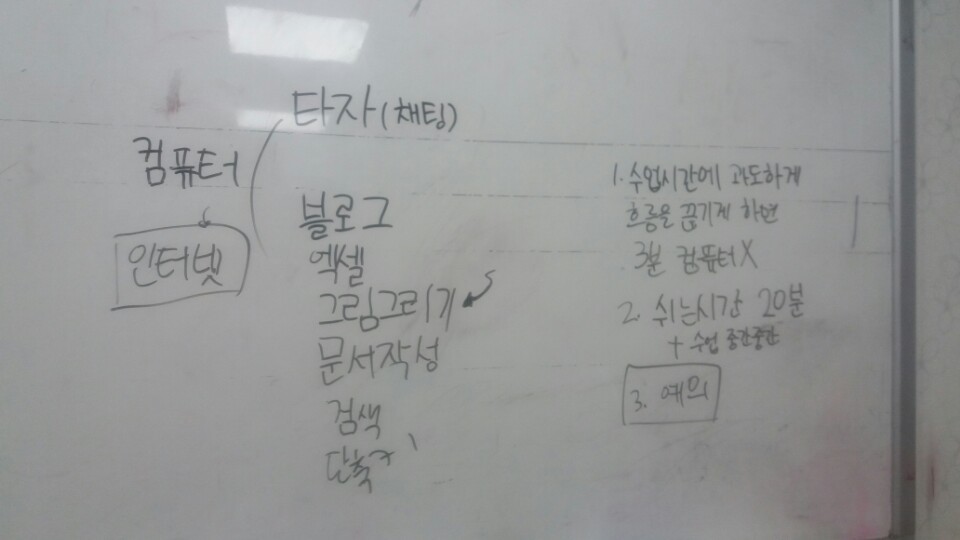 타자(채팅)
컴퓨터
인터넷
블로그
엑셀
그림그리기
문서작성
검색
단축키
1. 수업시간에 과도하게
흐름을 끊기게 하면
3분 컴퓨터X
2. 쉬는시간 20분
+ 수업 중간중간
3. 예의